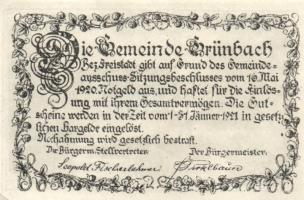 Die Gemeinde Grünbach
Bez. Freistadt gibt auf Grund des Gemeinde-
ausschuss-Sitzungsbeschlusses vom 16. Mai
1920 Notgeld aus, und haftet für die Einlös-
ung mit ihrem Gesamtvermögen. Die Gut-
scheine werden in der Zeit vom 1-31 Jänner 1921 in gesetz-
lichen Bargelde eingelöst.
Nachahmung wird gesetzlich bestraft.
Die Bürgerm. Stellvertreter. Der Bürgermeister.
Leopold